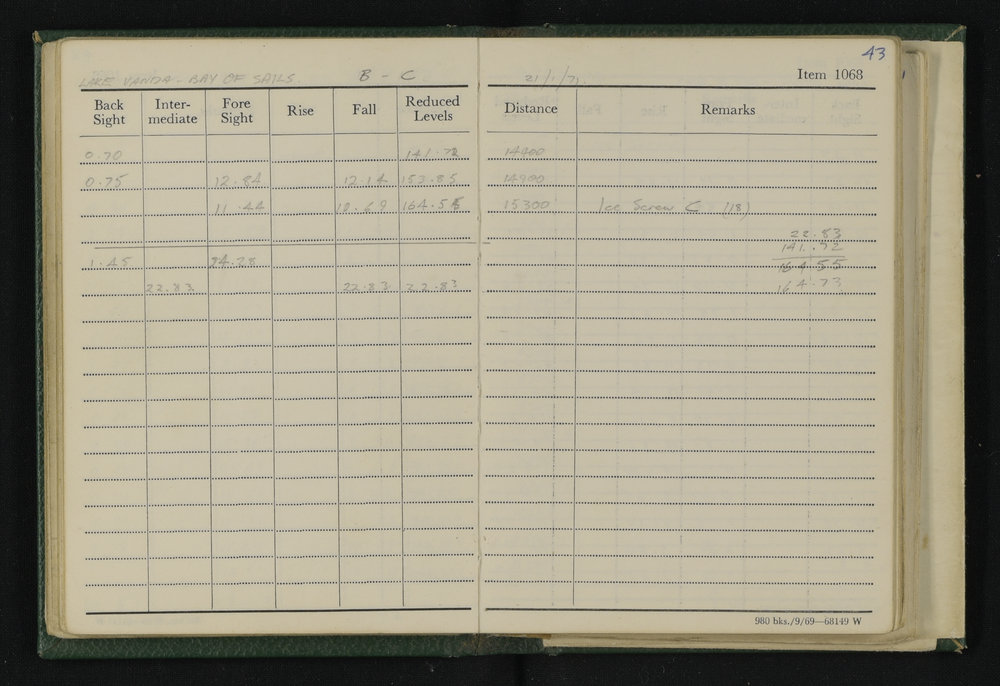 43
LAKE VANDA - BAY OF SAILS B - C 21/1/71 Item 1068
Back Sight Inter-mediate Fore Sight Rise Fall Reduced Levels Distance Remarks
0.70 141.72 14400
0.75 12.84 12.14 153.85 14900
11.44 10.69 164.55 15300 Ice Screw C (18)
22.83
141.72
1.45 24.28 164.55
22.83 22.83 22.83 164.73
980 bks./9/69—68149 W